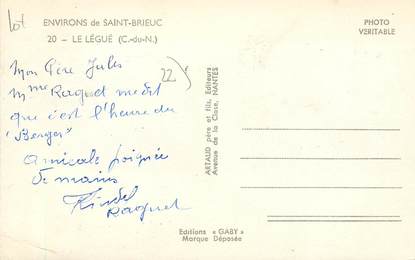 lot
ENVIRONS de SAINT-BRIEUC
20 - LE LÉGUÉ (C.-du-N.)
PHOTO
VERITABLE
Mon Père Jules
22
Mme Raguet me dit
que c'est l'heure du
"Berger"
Amicale poignée
de mains
Raguet
ARTAUD père et fils, Editeurs
Avenue de la Close, NANTES
Editions « GABY »
Marque Déposée